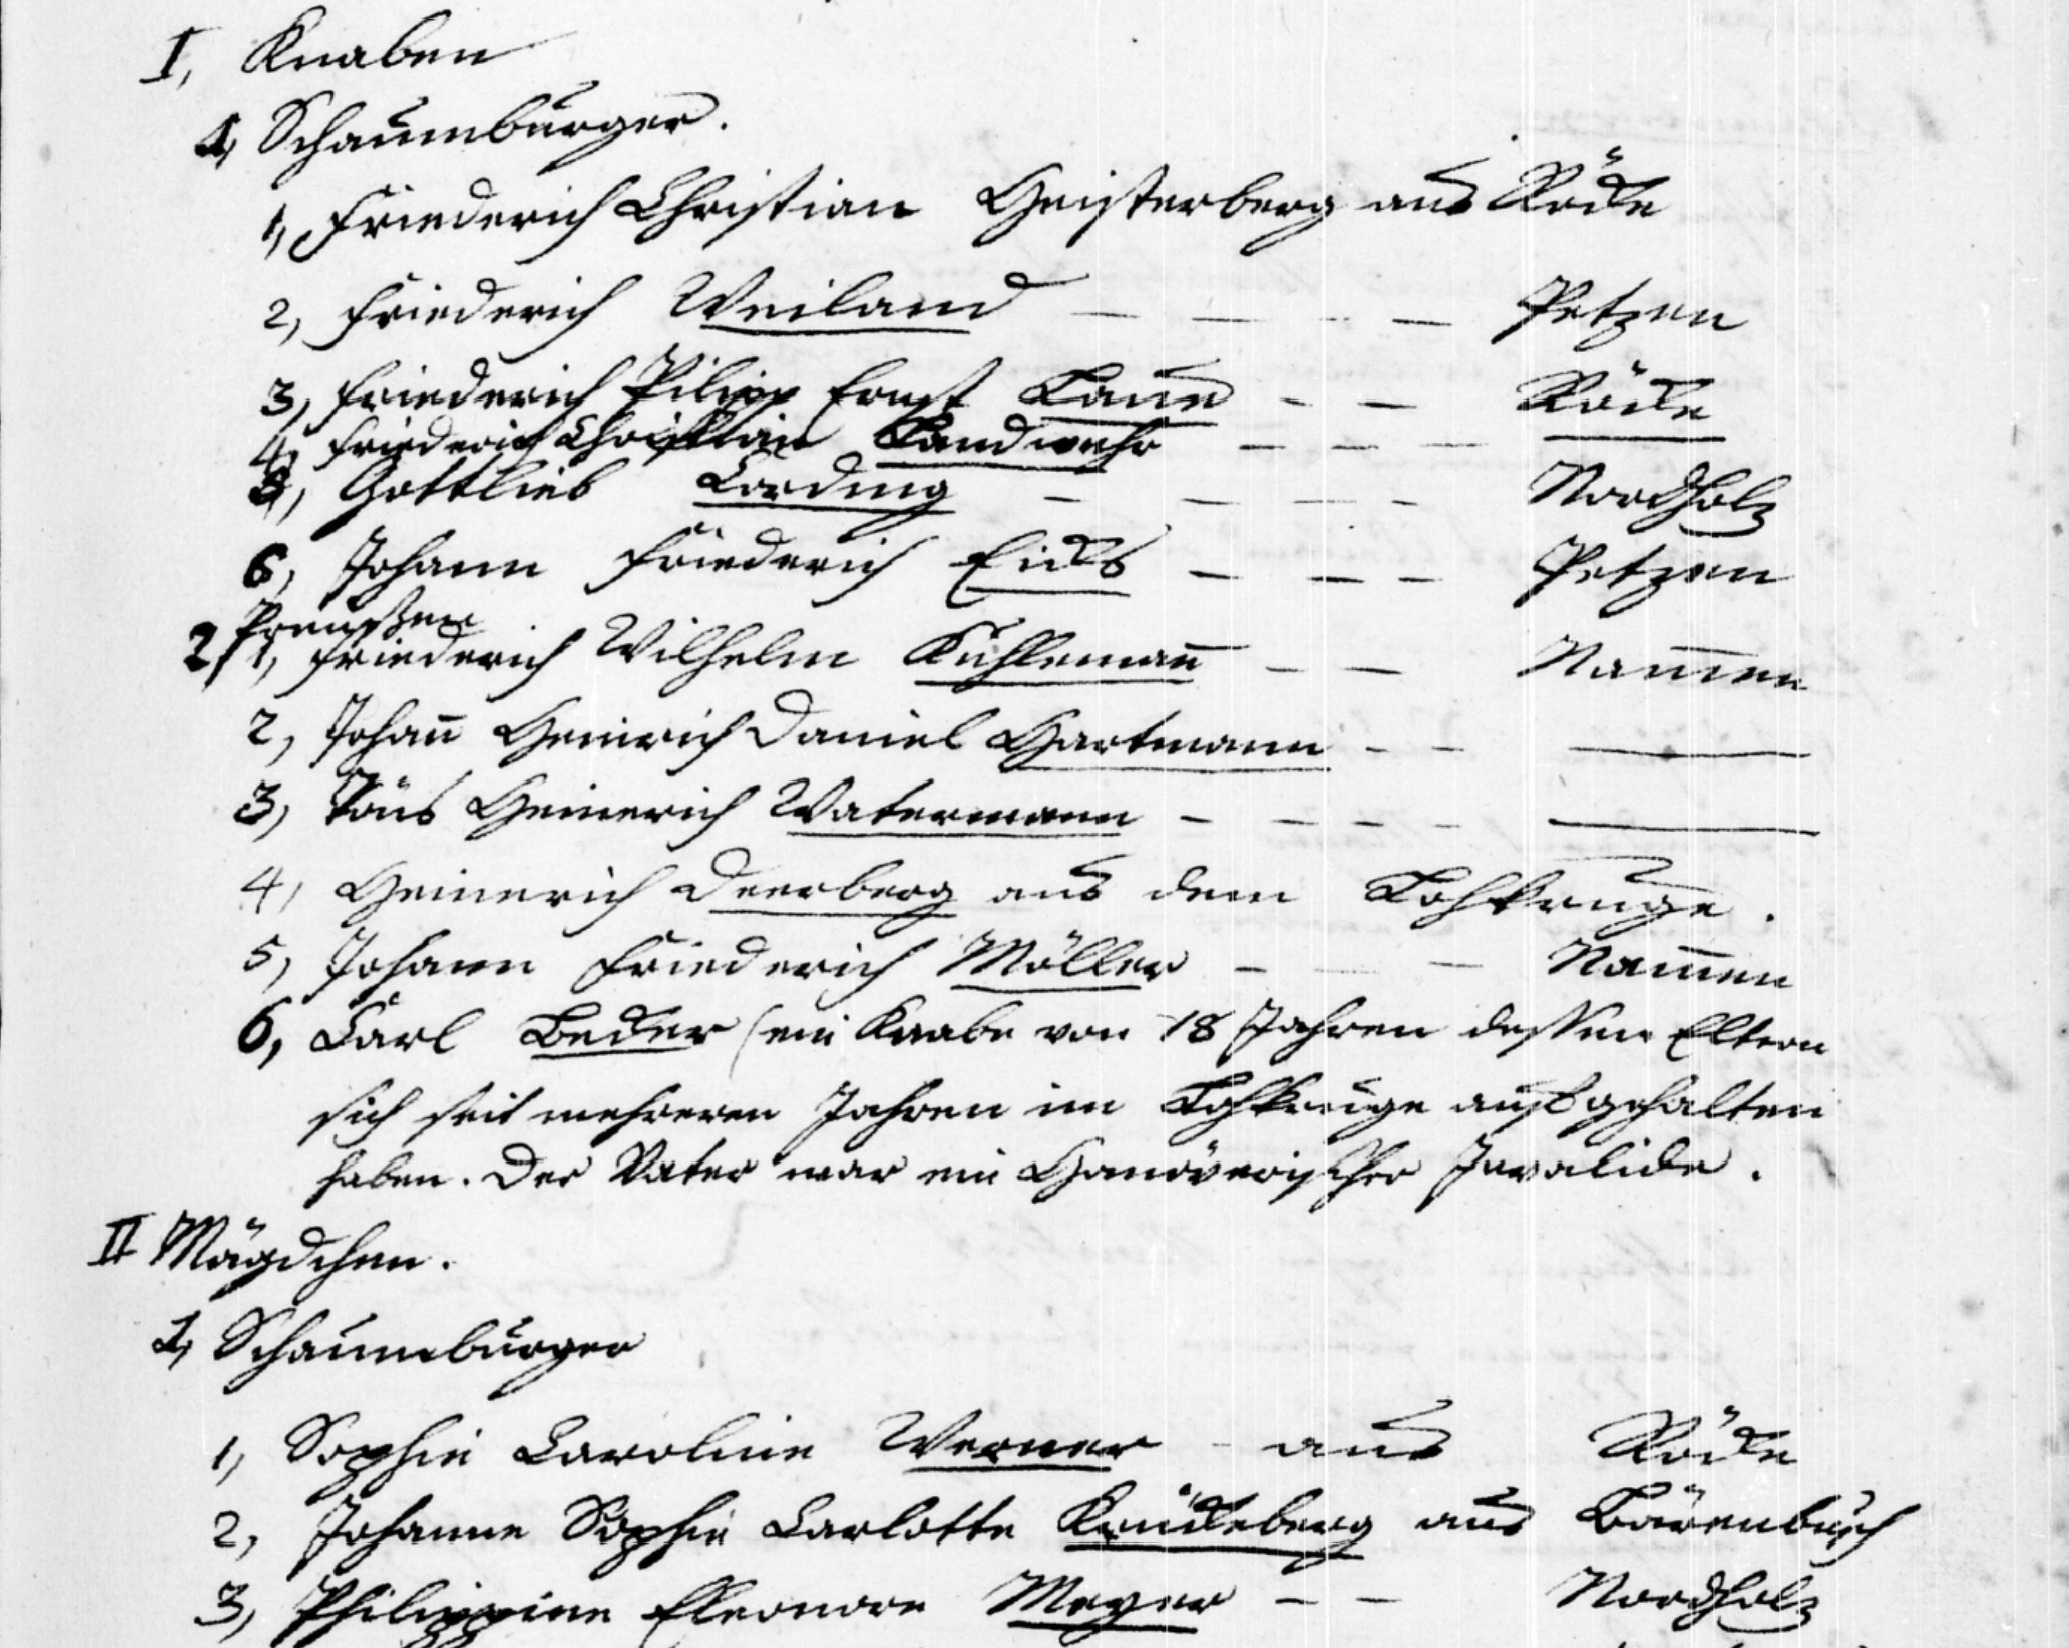 I, Knaben
1, Schaumburger.
1, Friederich Christian Geisterberg aus Röcke
2, Friederich Weiland — — — — Petzen
3, Friederich Pilipp Ernst Laue - — Röcke
4, Friederich Christian Landwehr — — —
5, Gottlieb Cording — — — - Nordholz
6, Johann Friederich Eicks — — — Petzen
Preußen
2, 1, Friederich Wilhelm Kuhlemañ — — Nam̄en
2, Johañ Heinrich Daniel Hartmann - — ——
3, Töns Heinerich Watermann - — — — ——
4, Heinerich Deerberg aus dem Lohkruge.
5, Johann Friederich Möller — — — Nam̄en
6, Carl Becker (ein Knabe von 18 Jahren dessen Eltern
sich seit mehreren Jahren im Lohkruge aufgehalten
haben. Der Vater war ein Hanöverischer Invalide.
II Mägdchen.
1, Schaumburger
1, Sophie Caroline Werner - aus Röcke
2, Johanne Sophie Carlotte Krückeberg aus Bärenbusch
3, Philippine Eleonore Meyer — — Nordholz